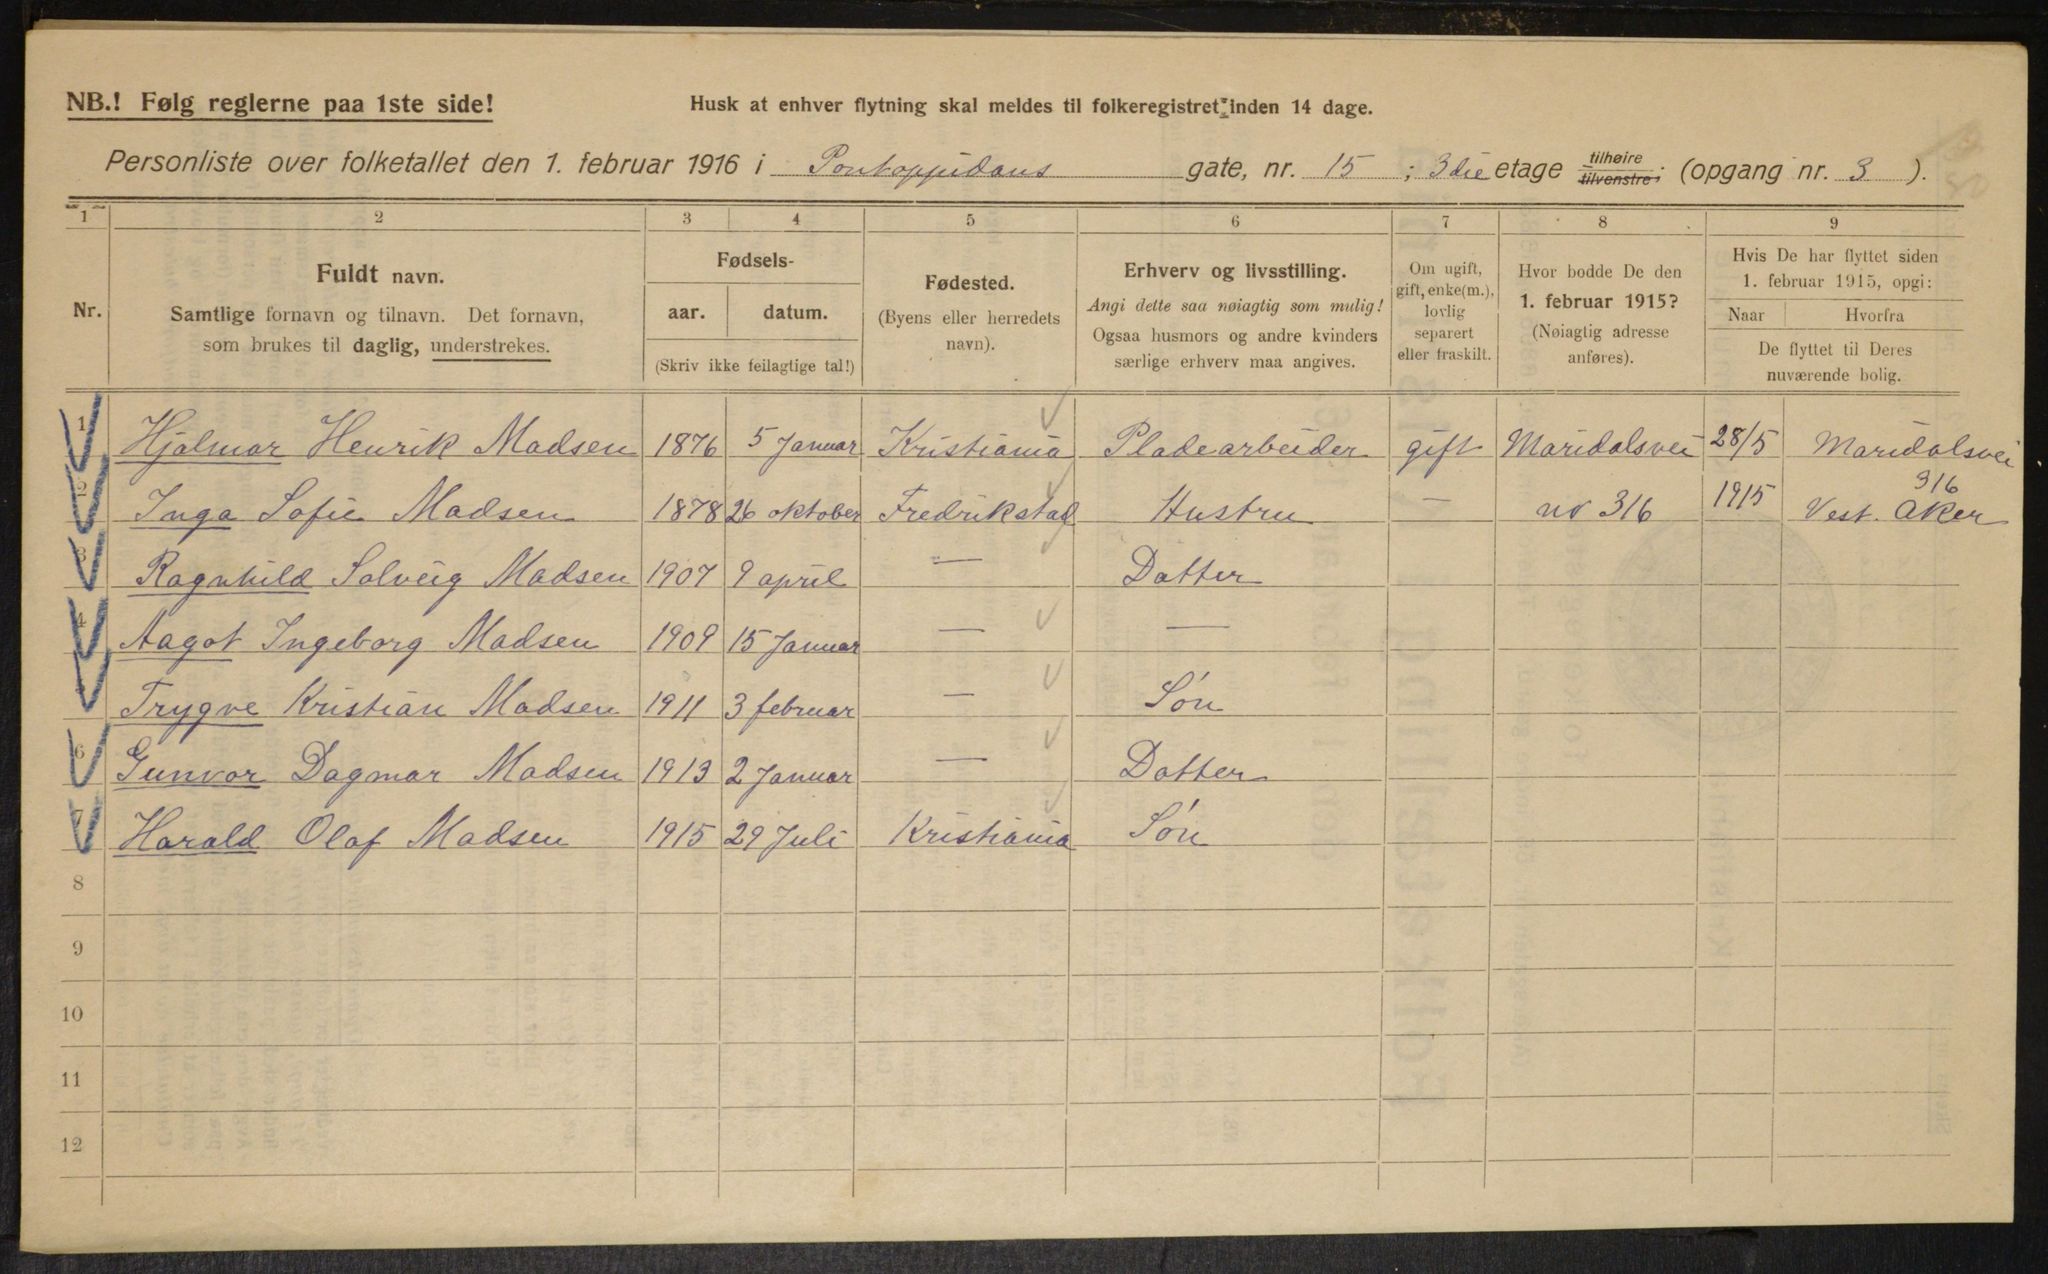 NB.! Følg reglerne paa 1ste side!
Husk at enhver flytning skal meldes til folkeregistret inden 14 dage.
Personliste over folketallet den 1. februar 1916 i Pontoppidans gate, nr. 15 ; 3die etage tilhøire tilvenstre; (opgang nr. 3 ).
1 2 3 4 5 6 7 8 9
Nr.
Fuldt navn.
Samtlige fornavn og tilnavn. Det fornavn,
som brukes til daglig, understrekes.
Fødsels-
aar. datum.
(Skriv ikke feilagtige tal!)
Fødested.
(Byens eller herredets
navn).
Erhverv og livsstilling.
Angi dette saa nøiagtig som mulig!
Ogsaa husmors og andre kvinders
særlige erhverv maa angives.
Om ugift,
gift, enke(m.),
lovlig
separert
eller fraskilt.
Hvor bodde De den
1. februar 1915?
(Nøiagtig adresse
anføres).
Hvis De har flyttet siden
1. februar 1915, opgi:
Naar Hvorfra
De flyttet til Deres
nuværende bolig.
1 Hjalmar Henrik Madsen 1876 5 Januar Kristiania Pladearbeider gift Maridalsvei 28/5 Maridalsvei
316
2 Inga Sofie Madsen 1878 26 oktober Fredrikstad Hustru — nr 316 1915 Vest. Aker
3 Ragnhild Solveig Madsen 1907 9 april — Datter
4 Aagot Ingeborg Madsen 1909 15 Januar — —
Trygve Kristian Madsen 1911 3 februar — Søn
6 Gunvor Dagmar Madsen 1913 2 Januar — Datter
7 Harald Olaf Madsen 1915 29 Juli Kristiania Søn
8
9
10
11
12